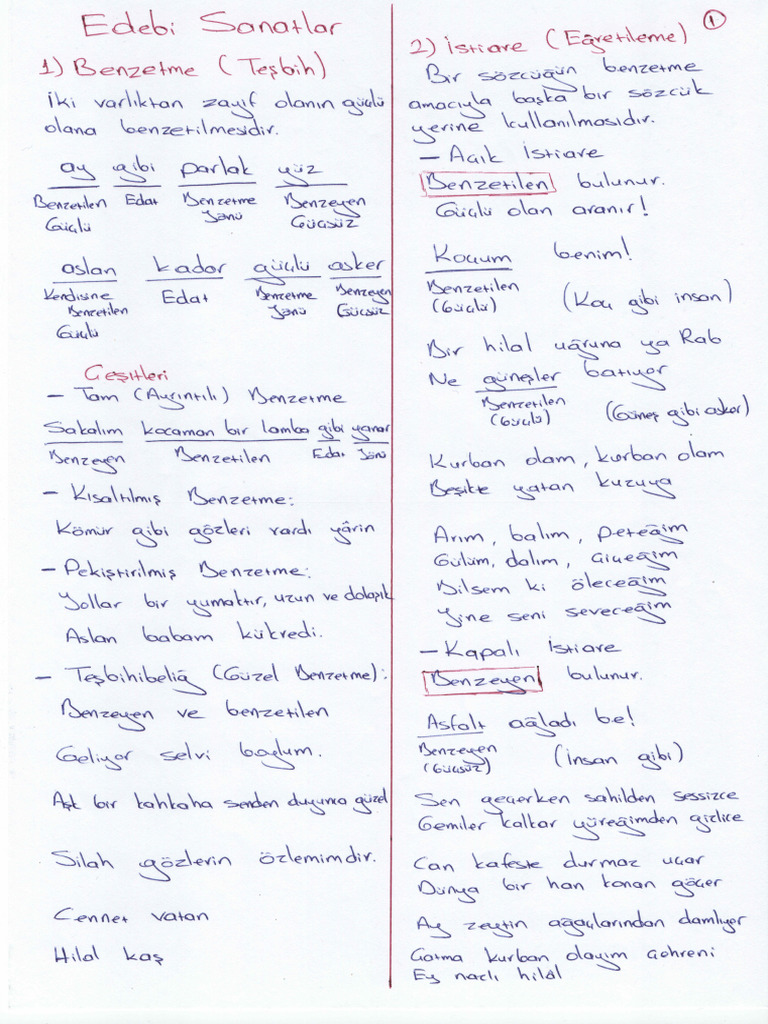 Edebi Sanatlar
1) Benzetme (Teşbih)
İki varlıktan zayıf olanın güçlü
olana benzetilmesidir.
ay gibi parlak yüz
Benzetilen Edat Benzetme Benzeyen
Güçlü Yönü Güçsüz
aslan kadar güçlü asker
Kendisine Edat Benzetme Benzeyen
Benzetilen Yönü Güçsüz
Güçlü
Çeşitleri
- Tam (Ayrıntılı) Benzetme
Sakalım kocaman bir lamba gibi yanar
Benzeyen Benzetilen Edat Yönü
- Kısaltılmış Benzetme:
Kömür gibi gözleri vardı yârin
- Pekiştirilmiş Benzetme:
Yollar bir yumaktır, uzun ve dolaşık
Aslan babam kükredi.
- Teşbihibeliğ (Güzel Benzetme):
Benzeyen ve benzetilen
Geliyor selvi boylum.
Aşk bir kahkaha senden duyunca güzel
Silah gözlerin özlemimdir.
Cennet vatan
Hilal kaş
1
2) İstiare (Eğretileme)
Bir sözcüğün benzetme
amacıyla başka bir sözcük
yerine kullanılmasıdır.
- Açık İstiare
Benzetilen bulunur.
Güçlü olan aranır!
Koçum benim!
Benzetilen
(Güçlü) (Koç gibi insan)
Bir hilal uğruna ya Rab
Ne güneşler batıyor
Benzetilen
(Güçlü) (Güneş gibi asker)
Kurban olam, kurban olam
Beşikte yatan kuzuya
Arım, balım, peteğim
Gülüm, dalım, çiçeğim
Bilsem ki öleceğim
Yine seni seveceğim
- Kapalı İstiare
Benzeyen bulunur.
Asfalt ağladı be!
Benzeyen
(Güçsüz) (İnsan gibi)
Sen geçerken sahilden sessizce
Gemiler kalkar yüreğimden gizlice
Can kafeste durmaz uçar
Dünya bir han konan göçer
Ay zeytin ağaçlarından damlıyor
Çatma kurban olayım çehreni
Ey nazlı hilâl